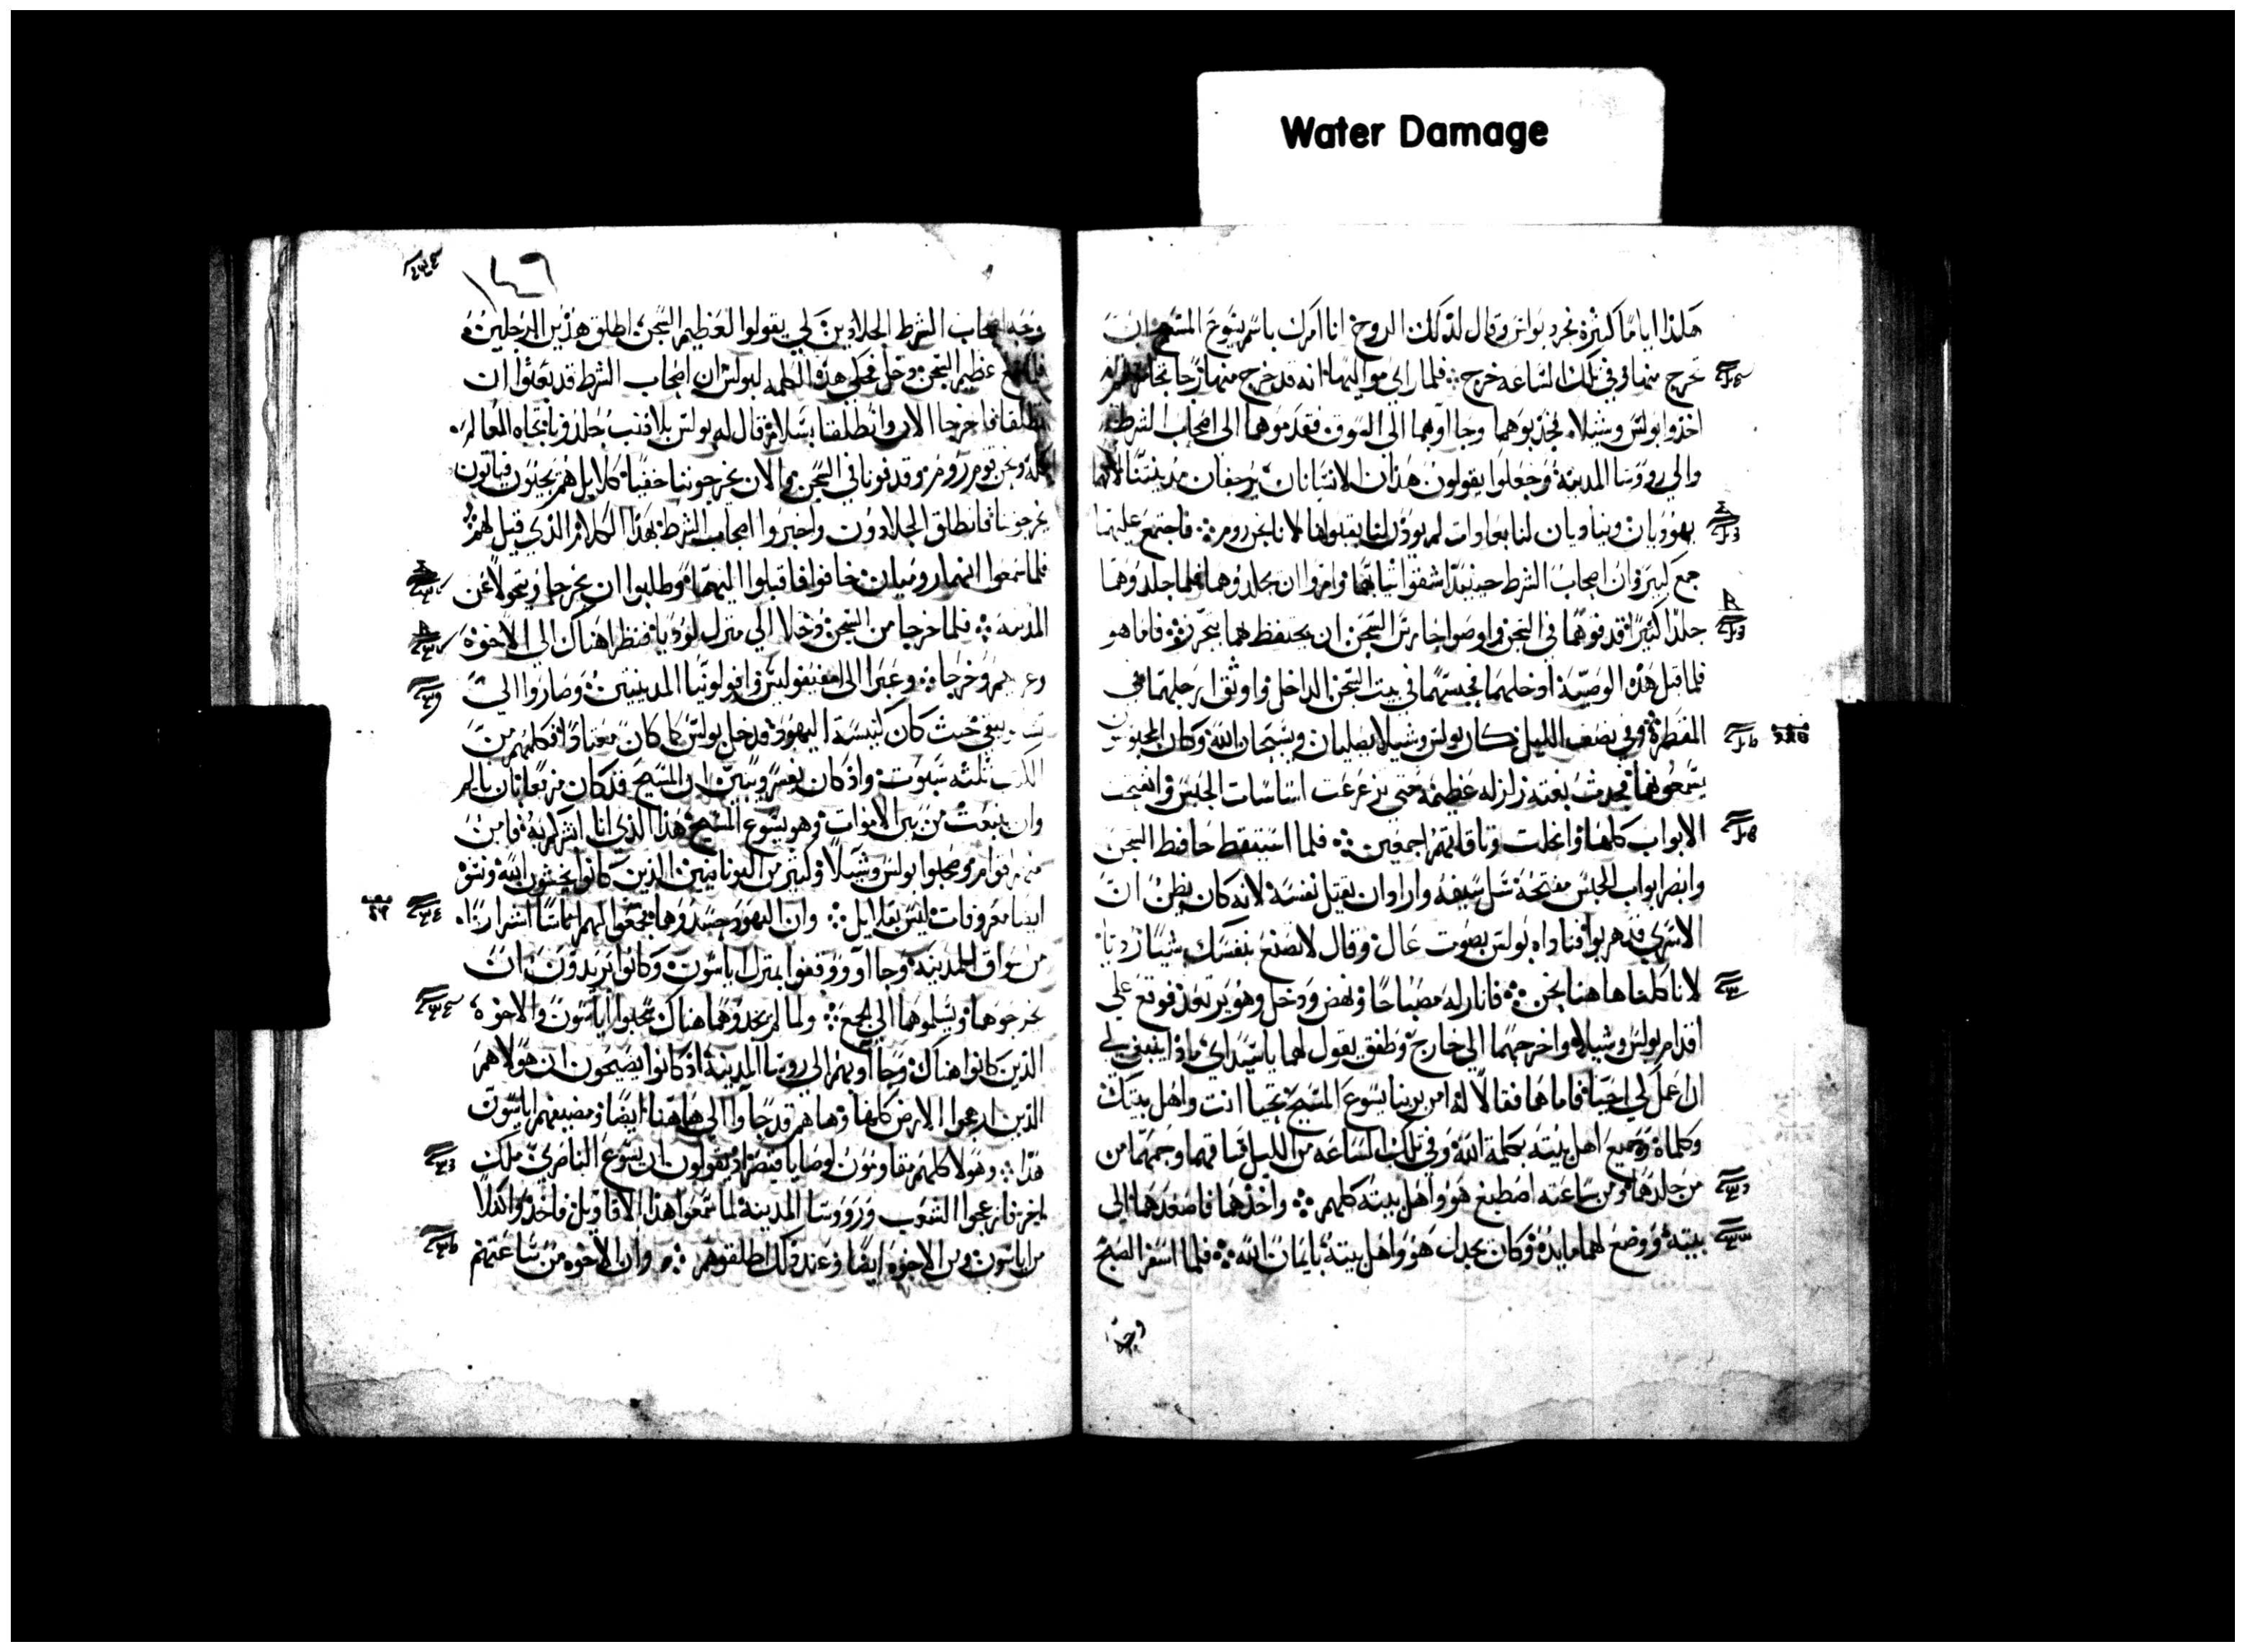 Water Damage
هكذا اياما كثيرة فحرد بولس وقال لذلك الروح انا امرك باسم يسوع المسيح ان
تخرج منها وفي تلك الساعه خرج فلما راي مواليها انه قد خرج منها رجا
اخذوا بولس وشيلا فجذبوهما وجاا وبهما الى السوق فقدموهما الى اصحاب الشرط
والي رووسا المدينة وجعلوا يقولون هذان الانسانان يرجفان مدينتنا لانهما
يهوديان ويناديان لنا بعادات لم يوذن لنا بقبولها لاننا نحن روم فاجتمع عليهما
جمع كبير وان اصحاب الشرط حينيذ اشقوا ثيابهما وامروا ان يجلدوهما فلما جلدوهما
جلدا كثيرا قدفوهما في السجن واوصوا حارس السجن ان يحتفظ هما بتحرز فاما هو
فلما قبل هذه الوصية ادخلهما فحبسهما في بيت السجن الداخل واوثق ارجلهما في
المقطرة وفي نصف الليل كان بولس وشيلا يصليان ويسبحان الله وكان المحبوسون
يسمعونهما فحدث بغته زلزله عظيمه حتى تزعزعت اساسات الحبس وانفتحت
الابواب كلها وانحلت وثاقاتهم اجمعين فلما استيقظ حافظ السجن
وابصر ابواب الحبس مفتحة سل سيفه واراد ان يقتل نفسه لانه كان يظن ان
الاسرى قد هربوا فناداه بولس بصوت عال وقال لا تصنع بنفسك شيا رديا
لانا كلنا هاهنا نحن فانار له مصباحا ونهض ودخل وهو يرتعد فوقع علي
اقدام بولس وشيلا واخرجهما الي خارج وطفق يقول لهما ياسيداي ماذا ينبغي لي
ان اعمل لكي احيا فاما هما فقالا له امن بربنا يسوع المسيح تحيا انت واهل بيتك
وكلماه وجميع اهل بيته بكلمة الله وفي تلك الساعه من الليل فساقهما وحمهما من
من جلدهما ومن ساعته اصطبغ هو واهل بيته كلهم واخذهما فاصعدهما الي
بيته ووضع لهما مايدة وكان يجدل هو واهل بيته بايمان الله فلما اسفر الصبح
وجه
١٤٦
وجه اصحاب الشرط الجلادين لكي يقولوا لعظيم السجن اطلق هذين الرجلين
فلما سمع عظيم السجن دخل فحكى هذه الكلمه لبولس ان اصحاب الشرط قد بعثوا ان
تطلقا فاخرجا الان وانطلقا بسلام قال له بولس بلا ذنب جلدونا تجاه العالم
كله ونحن قوم روم وقدفونا في السجن والان يخرجوننا خفيا كلا بل هم يجيون فياتون
يخرجونا فانطلق الجلادون واخبروا اصحاب الشرط بهذا الكلام الذي قيل لهم
فلما سمعوا انهما روميان خافوا فاقبلوا اليهما وطلبوا ان يخرجا ويتحولا عن
المدينه فلما خرجا من السجن دخلا الي منزل لوديا فنظرا هناك الي الاخوة
وخرجا وعبرا الى امفيفوليس وافولونيا المدينتين وصاروا الي
حيث كان كنيسة اليهود فدخل بولس كما كان معتادا فكلمهم من
الكتب ثلثه سبوت واذ كان يفسر ويبين ان المسيح قد كان مزمعا ان يالم
وان ينبعث من بين الاموات وهو يسوع المسيح هذا الذي انا ابشركم به فامن
منهم اقوام وصحبوا بولس وشيلا وكثير من اليونانيين الذين كانوا يخشون الله ونسوة
ايضا معروفات ليس بقلايل وان اليهود حسدوهما فجمعوا اليهم اناسا اشرارا
من سواق المدينه وجااوا ووقفوا بمنزل اياسون وكانوا يريدون ان
يخرجوهما ويسلموهما الي الجمع ولما لم يجدوهما هناك سحبوا اياسون والاخوة
الذين كانوا هناك وجااوا بهم الي رووسا المدينة اذ كانوا يصيحون ان هولا هم
الذين ارعجوا الارض كلها وها هم قد جاوا الي هاهنا ايضا ومضيفهم اياسون
هذا وهولا كلهم مقاومون لوصايا قيصر اذ يقولون ان يسوع الناصري ملك
اخر فارعجوا الشعوب ورووسا المدينة لما سمعوا هذا الاقاويل فاخذوا كفلا
من اياسون ومن الاخوة ايضا وعند ذلك اطلقوهم وان الاخوة من ساعتهم